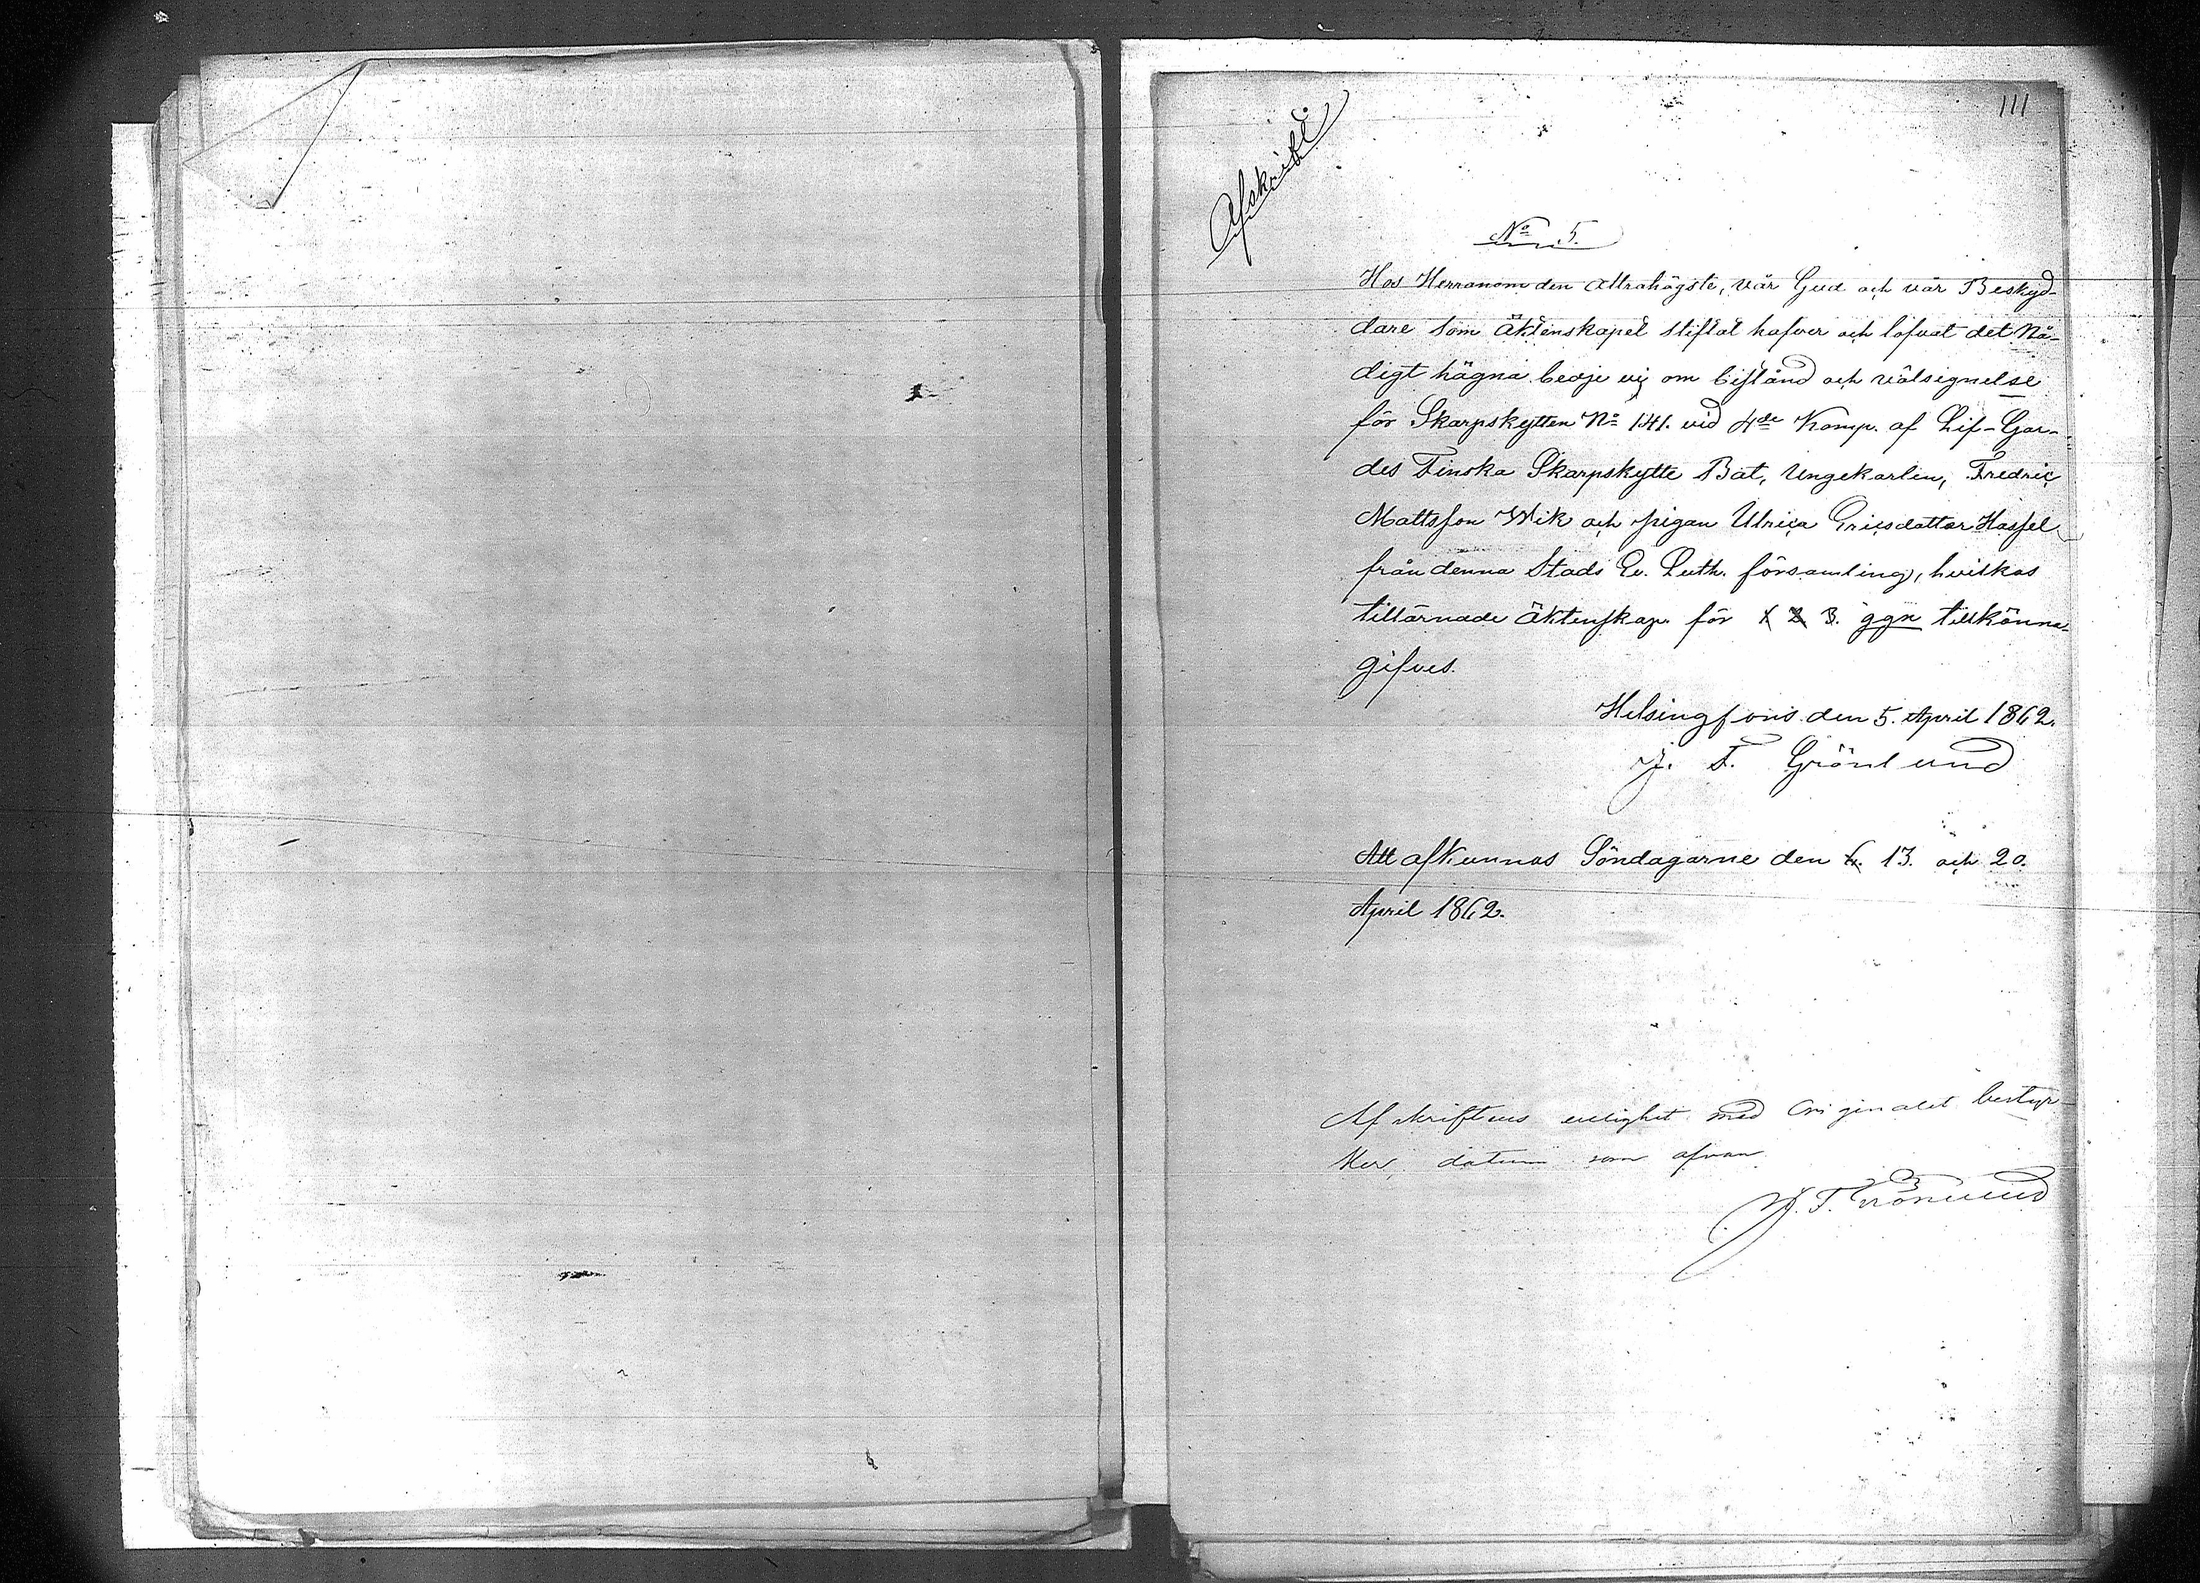 111
Afskrift.
No 5.
Hos Herranom den Allrahögste, vår Gud och vår Beskyd-
dare som Äktenskapet stiftat hafver och lofvat det Nå-
digt hägna bedje vij om bistånd och välsignelse
för Skarpskytten No 141. vid 4de Komp. af Lif-Gar-
des Finska Skarpskytte Bat, Ungekarlen, Fredric
Mattsson Wik och pigan Ulrica Ericsdotter Hassel
från denna Stads Ev. Luth. församling, hvilkas
tillärnade äktenskap för 1 2 3. ggn tillkänna-
gifves.
Helsingfors den 5. April 1862.
J. F. Grönlund
Att afkunnas Söndagarne den 6. 13. och 20.
April 1862.
Afskriftens enlighet med Originalet bestyr-
ker, datum som ofvan
J. F. Grönlund